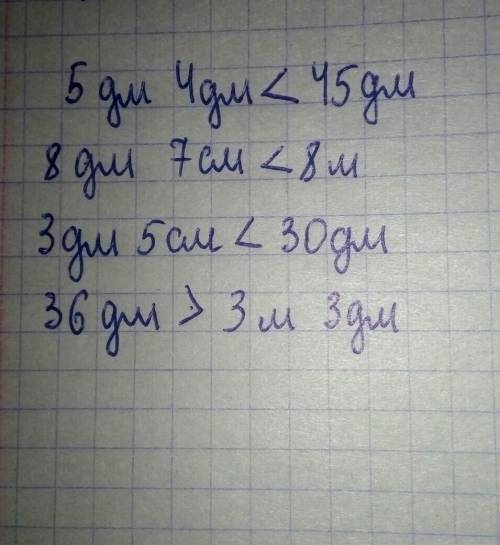 5 дм 4дм < 45дм
8 дм 7см < 8м
3дм 5см < 30дм
36 дм > 3м 3дм